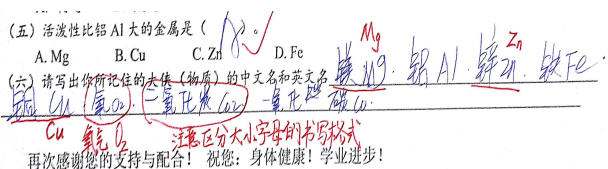 (五) 活泼性比铝 Al 大的金属是 ( A )。
A. Mg B. Cu C. Zn D. Fe
Mg Zn
(六) 请写出你所记住的大侠 (物质) 的中文名和英文名 镁 Mg. 铝 Al. 锌 Zn. 铁 Fe.
铜 Cu 氧 O2 二氧化碳 Co2 一氧化碳 Co.
Cu 氧气 O2 注意区分大小字母的书写格式
再次感谢您的支持与配合! 祝您: 身体健康! 学业进步!